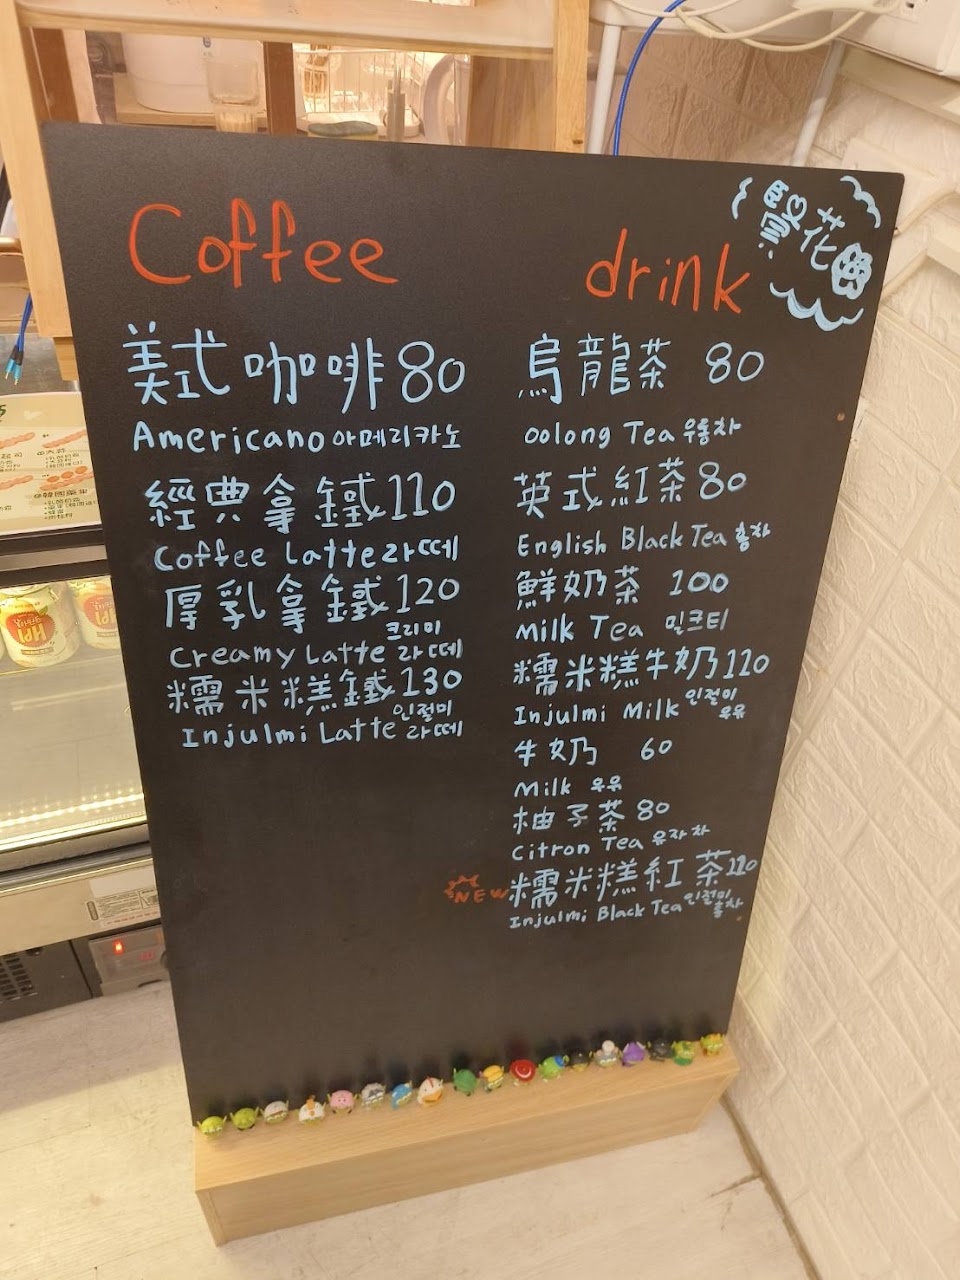 Coffee
美式咖啡80
Americano 아메리카노
經典拿鐵110
Coffee Latte 라떼
厚乳拿鐵120
Creamy Latte 크리미 라떼
糯米糕鐵130
Injulmi Latte 인절미 라떼
drink
烏龍茶 80
oolong Tea 우롱차
英式紅茶80
English Black Tea 홍차
鮮奶茶 100
Milk Tea 밀크티
糯米糕牛奶110
Injulmi Milk 인절미 우유
牛奶 60
Milk 우유
柚子茶 80
Citron Tea 유자차
NEW 糯米糕紅茶110
Injulmi Black Tea 인절미 홍차